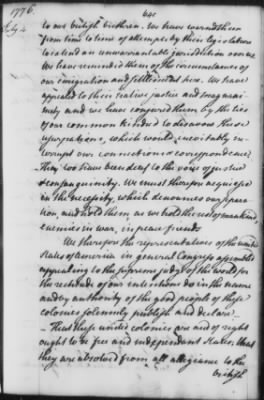 1776. 640
July 4
to our british brethren. We have warned them
from time to time of attempts by their legislature
to extend an unwarrantable jurisdiction over us
We have reminded them of the circumstances of
our emigration and settlement here. We have
appealed to their native justice and magnani-
mity and we have conjured them by the ties
of our common kindred to disavow these
usurpations, which would inevitably in-
terrupt our connections & correspondence
They too have been deaf to the voice of justice
& consanguinity. We must therefore acquiesce
in the necessity, which denounces our separa-
tion, and hold them as we hold the rest of mankind,
enemies in war, in peace friends
We therefore the representatives of the united
states of America in general Congress assembled
appealing to the supreme judge of the world for
the rectitude of our intentions do in the name
and by authority of the good people of these
colonies solemnly publish and declare
That these united colonies are and of right
ought to be free and independent states; that
they are absolved from all allegiance to the
british